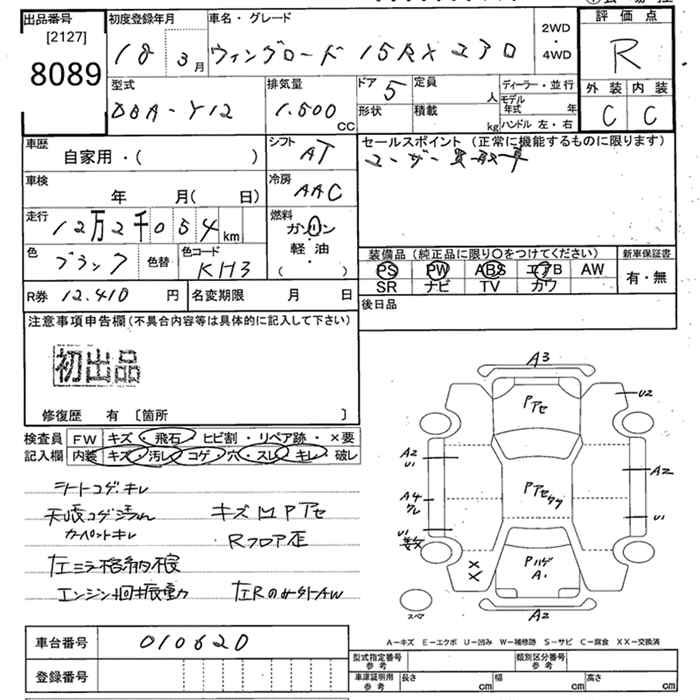 出品番号 [2127] 8089
初度登録年月 18年 3月
車名・グレード ウィングロード 15RX 230
2WD ・ 4WD
評価点 R
外装 内装
C C
型式 DBA-Y12
排気量 1.500 CC
ドア 5
形状
定員 人
積載 kg
ディーラー・並行
モデル年式 年
ハンドル 左・右
車歴 自家用・( )
シフト AT
セールスポイント (正常に機能するものに限ります)
ユーザー買取車
車検 年 月( 日)
冷房 AAC
走行 12万2千054 km
燃料 ガソリン ・ 軽油 ( )
色 ブラック 色替
色コード KH3
装備品 (純正品に限り○をつけてください)
新車保証書
PS PW ABS エアB AW
SR ナビ TV カワ
有・無
R券 12.410 円
名変期限 月 日
後日品
注意事項申告欄 (不具合内容等は具体的に記入して下さい)
初出品
修復歴 有 〔箇所 〕
検査員記入欄
FW キズ・飛石・ヒビ割・リペア跡・×要
内装 キズ・汚レ・コゲ・穴・スレ・キレ・破レ
シートコゲ、キレ
カーペットキレ
キズ凹Pアセ
Rフロア歪
左ミラー格納不良
エンジン 振動
左RのみAW
A3
Pアセ
U2
A2
U1
A2
Pアセ
A4
U1
U1
XX
Pハゲ
A1
A2
スペア
A-キズ E-エクボ U-凹み W-補修跡 S-サビ C-腐食 XX-交換済
車台番号 010620
登録番号
型式指定番号 参考
類別区分番号 参考
車庫証明用 参考
長さ cm 幅 cm 高さ cm